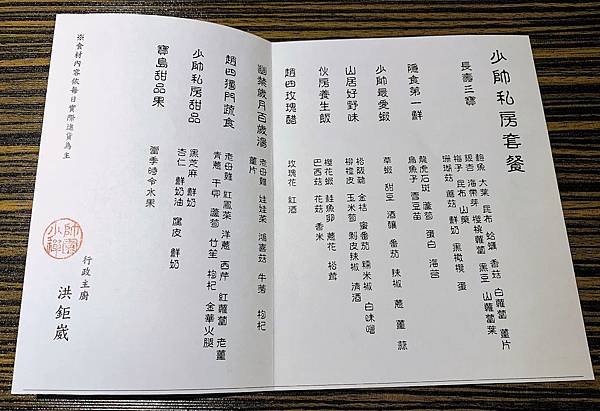 少帥私房套餐
長壽三寶
鮑魚 大葉 昆布 蛤蠣 香菇 白蘿蔔 薑片
銀杏 海帶芽 櫻桃蘿蔔 黑豆 山蘿蔔葉
梅子 昆布 山藥
珊瑚菇 蘑菇 鮮奶 黑橄欖 蛋
隱食第一鮮
龍虎石斑 蘆筍 蛋白 海苔
烏魚子 雪豆苗
少帥最愛蝦
草蝦 甜豆 酒釀 番茄 辣椒 蔥 薑 蒜
山居好野味
松阪豬 金桔 蜜番茄 糯米椒 白味噌
柳橙皮 玉米筍 剝皮辣椒 清酒
伙房養生飯
櫻花蝦 鮭魚卵 蔥花 松茸
巴西菇 花菇 香米
趙四玫瑰醋
玫瑰花 紅酒
幽禁歲月百歲湯
老母雞 娃娃菜 鴻喜菇 牛蒡 枸杞
薑片
趙四獨門蔬食
老母雞 紅鳳菜 洋蔥 西芹 紅蘿蔔 老薑
青蔥 干貝 蘆筍 竹笙 枸杞 金華火腿
少帥私房甜品
黑芝麻 鮮奶
杏仁 鮮奶油 腐皮 鮮奶
寶島甜品果
當季時令水果
※食材內容依每日實際進貨為主
行政主廚
洪鉅崴
少帥禪園